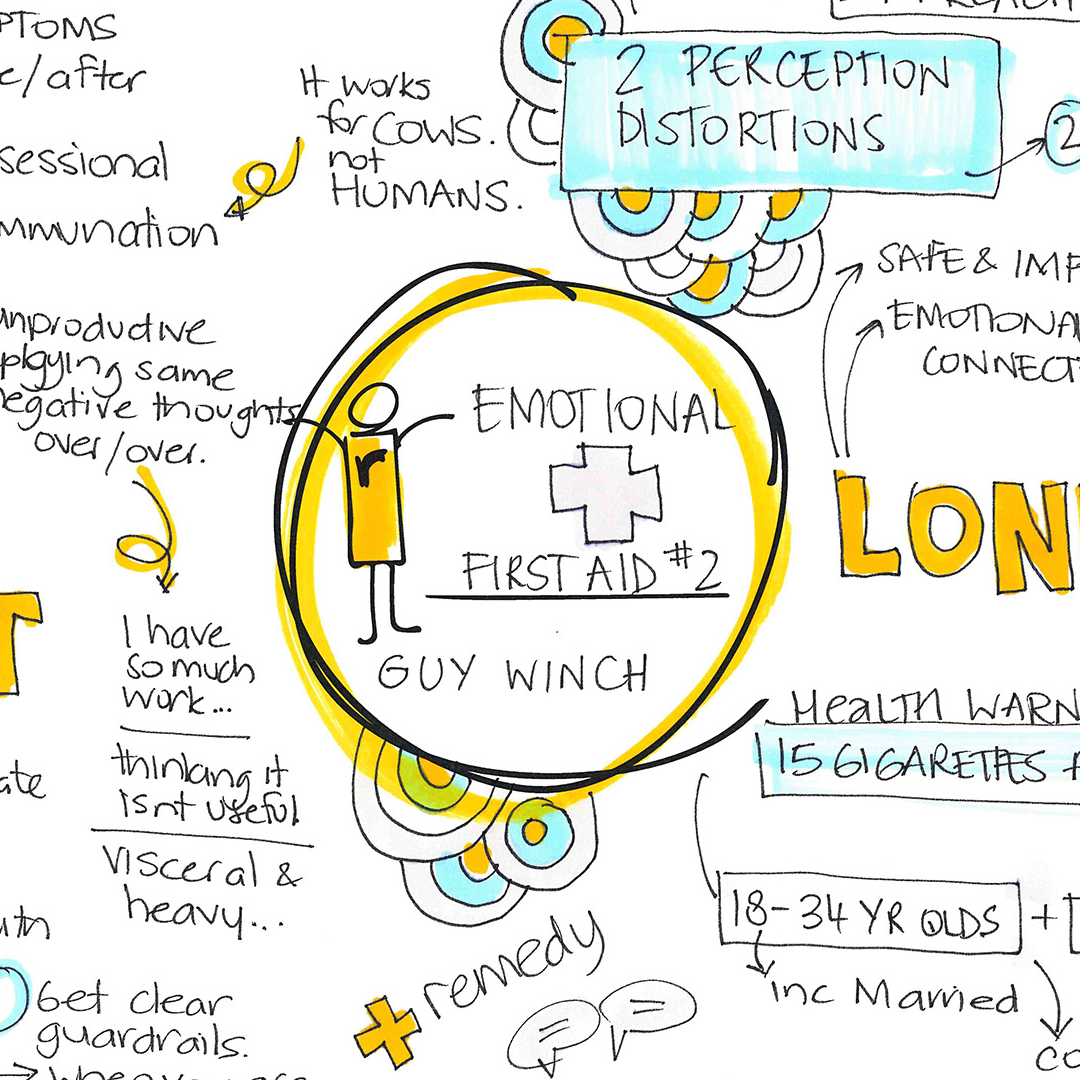 PTOMS
e/after
sessional
mmunation
It works
for COWS.
not
HUMANS.
2 PERCEPTION
DISTORTIONS
2
SAFE & IMP
EMOTIONA
CONNECT
unproductive
playing same
negative thoughts
over/over.
r
EMOTIONAL
FIRST AID #2
GUY WINCH
LON
T
I have
so much
work...
thinking it
isnt useful
Visceral &
heavy...
ate
uth
Get clear
guardrails.
remedy
HeaLTH WARN
15 CIGARETTES
18-34 YR OLDS
+
inc Married
CO